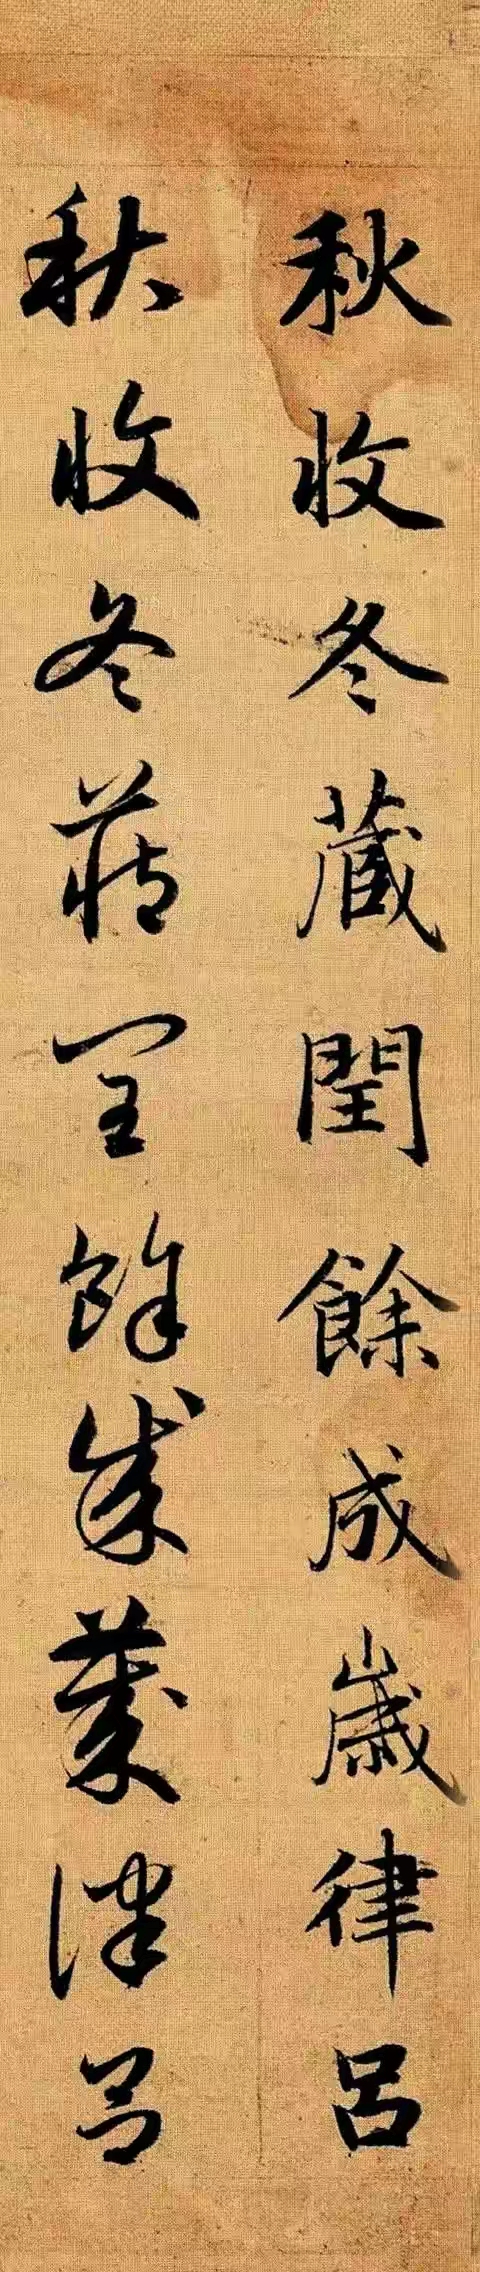 秋收冬蔵閏餘成歳律呂
秋收冬藏閏餘成歳律呂